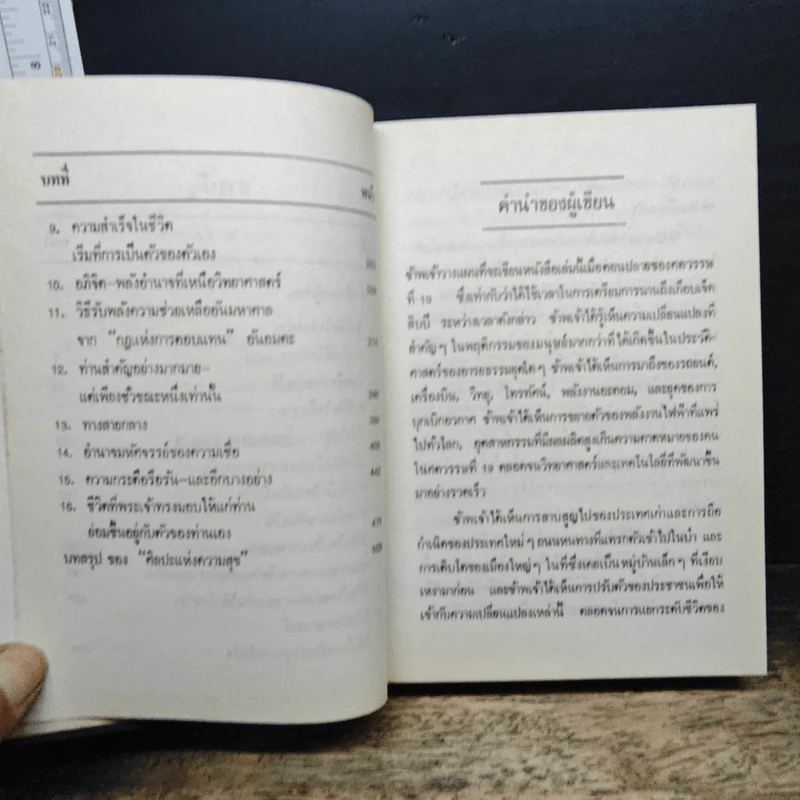 บทที่
หน้า
9. ความสำเร็จในชีวิต
เริ่มที่การเป็นตัวของตัวเอง
10. อภิจิต-พลังอำนาจที่เหนือวิทยาศาสตร์
11. วิธีรับพลังความช่วยเหลืออันมหาศาล
จาก “กฎแห่งการตอบแทน” อันอมตะ
12. ท่านสำคัญอย่างมากมาย-
แต่เพียงชั่วขณะหนึ่งเท่านั้น
13. ทางสายกลาง
14. อำนาจมหัศจรรย์ของความเชื่อ
15. ความกระตือรือร้น-และอีกบางอย่าง
16. ชีวิตที่พระเจ้าทรงมอบให้แก่ท่าน
ย่อมขึ้นอยู่กับตัวของท่านเอง
บทสรุป ของ “ศิลปะแห่งความสุข”
คำนำของผู้เขียน
ข้าพเจ้าวางแผนที่จะเขียนหนังสือเล่มนี้เมื่อตอนปลายของศตวรรษ
ที่ 19 ซึ่งเท่ากับว่าได้ใช้เวลาในการเตรียมการนานถึงเกือบเจ็ด
สิบปี ระหว่างเวลาดังกล่าว ข้าพเจ้าได้รู้เห็นความเปลี่ยนแปลงที่
สำคัญๆ ในพฤติกรรมของมนุษย์มากกว่าที่ได้เกิดขึ้นในประวัติ-
ศาสตร์ของอารยธรรมยุคใดๆ ข้าพเจ้าได้เห็นการมาถึงของรถยนต์,
เครื่องบิน, วิทยุ, โทรทัศน์, พลังงานอะตอม, และยุคของการ
บุกเบิกอวกาศ ข้าพเจ้าได้เห็นการขยายตัวของพลังงานไฟฟ้าที่แพร่
ไปทั่วโลก, อุตสาหกรรมที่มีผลผลิตสูงเกินความคาดหมายของคน
ในศตวรรษที่ 19 ตลอดจนวิทยาศาสตร์และเทคโนโลยีที่พัฒนาขึ้น
มาอย่างรวดเร็ว
ข้าพเจ้าได้เห็นการสาบสูญไปของประเทศเก่าและการถือ
กำเนิดของประเทศใหม่ๆ ถนนหนทางที่แทรกตัวเข้าไปในป่า และ
การเติบโตของเมืองใหญ่ๆ ในที่ซึ่งเคยเป็นหมู่บ้านเล็กๆ ที่เงียบ
เหงามาก่อน และข้าพเจ้าได้เห็นการปรับตัวของประชาชนเพื่อให้
เข้ากับความเปลี่ยนแปลงเหล่านี้ ตลอดจนการยกระดับชีวิตของ